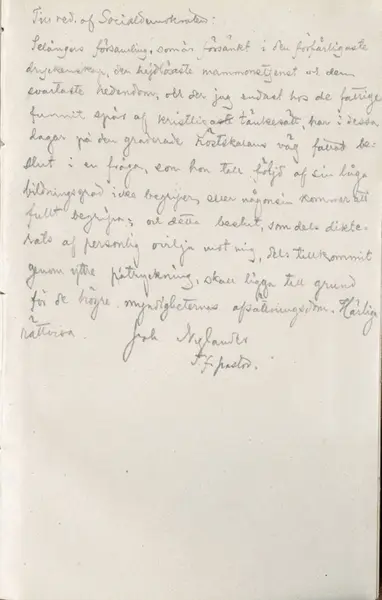 Till red. af Socialdemokraten:
Selångers församling, som är försänkt i den förfärligaste
dryckenskap, den tygellösaste mammonstjenst och den
svartaste hedendom, och der jag endast hos de fattige
funnit spår af kristligt tänkesätt, har i dessa
dagar på den graderade röstskalans väg fattat be-
slut i en fråga, som hon till följd af sin låga
bildningsgrad icke begriper, eller någonsin kommer att
fullt begripa; och detta beslut, som dels dikte-
rats af personlig ovilja mot mig, dels tillkommit
genom yttre påtryckning, skall ligga till grund
för de högre myndigheternas afsättningsdom. Härliga
rättvisa.
Nylander
pastor.